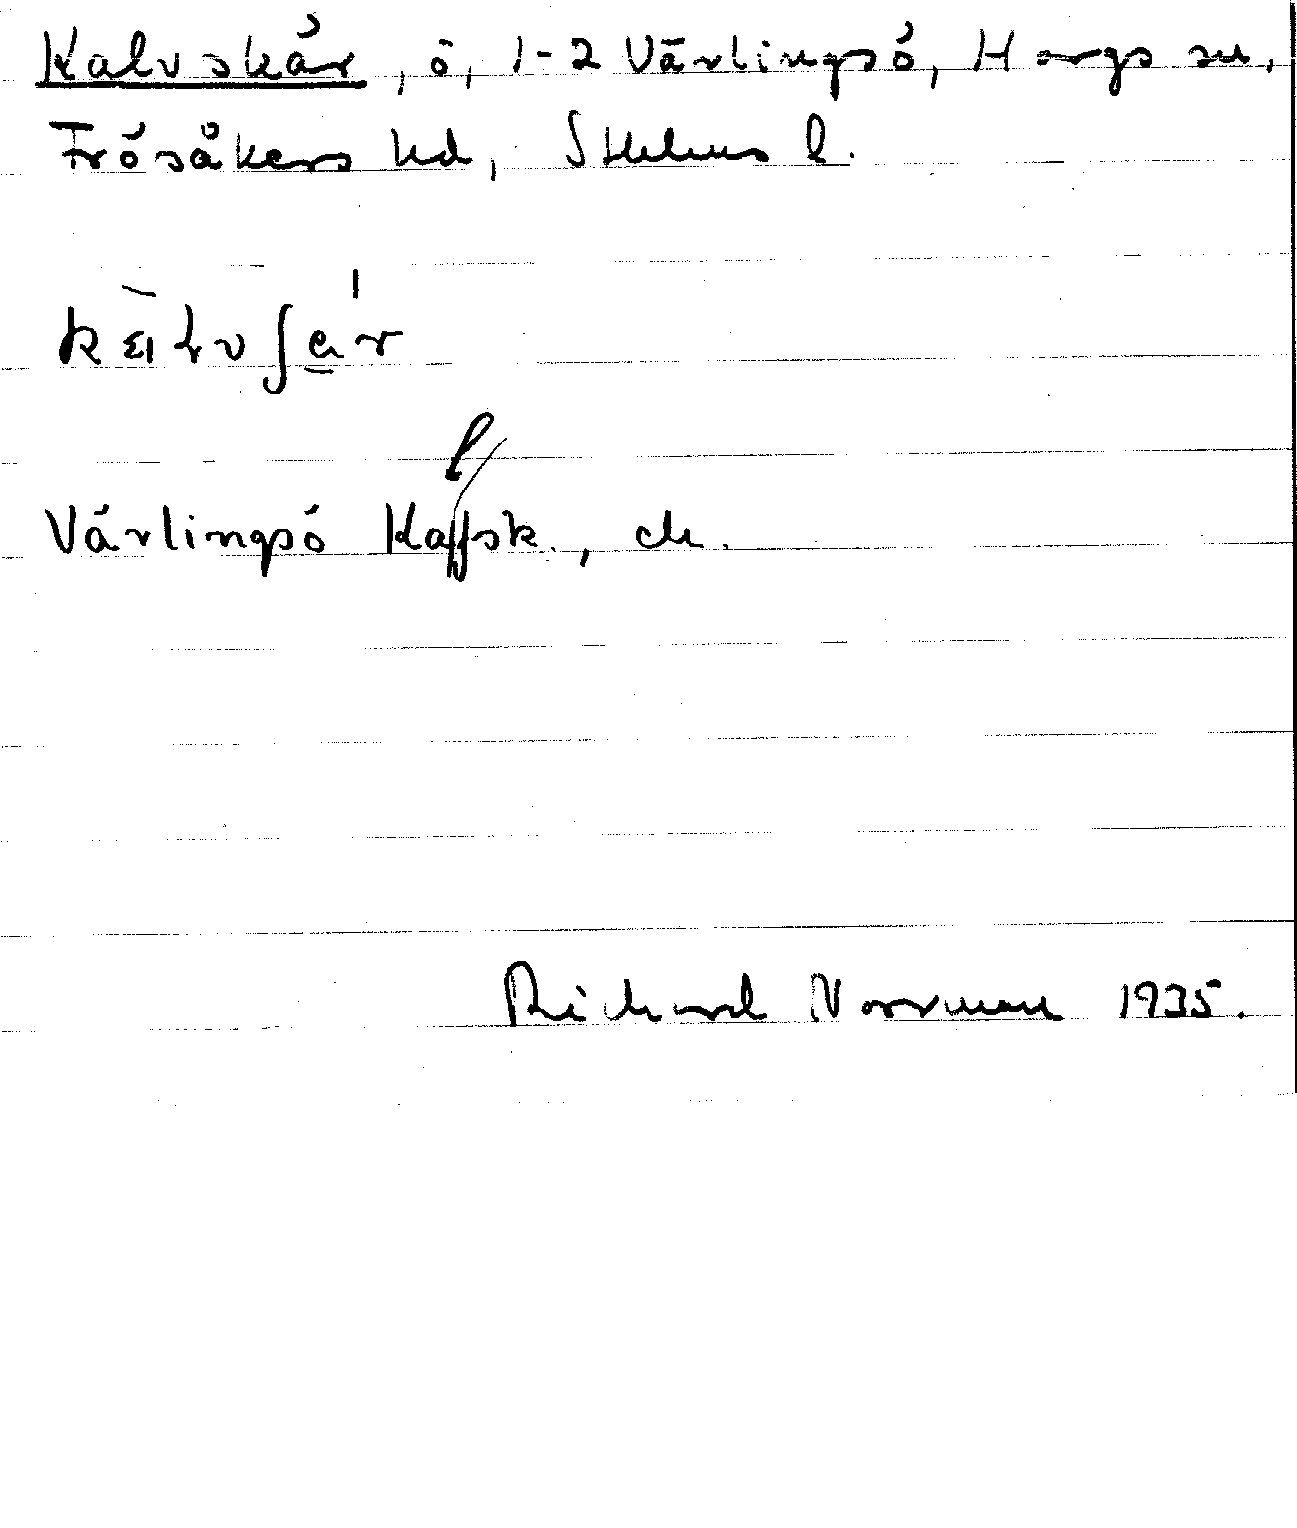 Kalvskär, ö, 1-2 Värlingsö, Hargs sn,
Frösåkers hd, Sthlms l.
Värlingsö Kalfsk., ek.
Richard Norrman 1935.